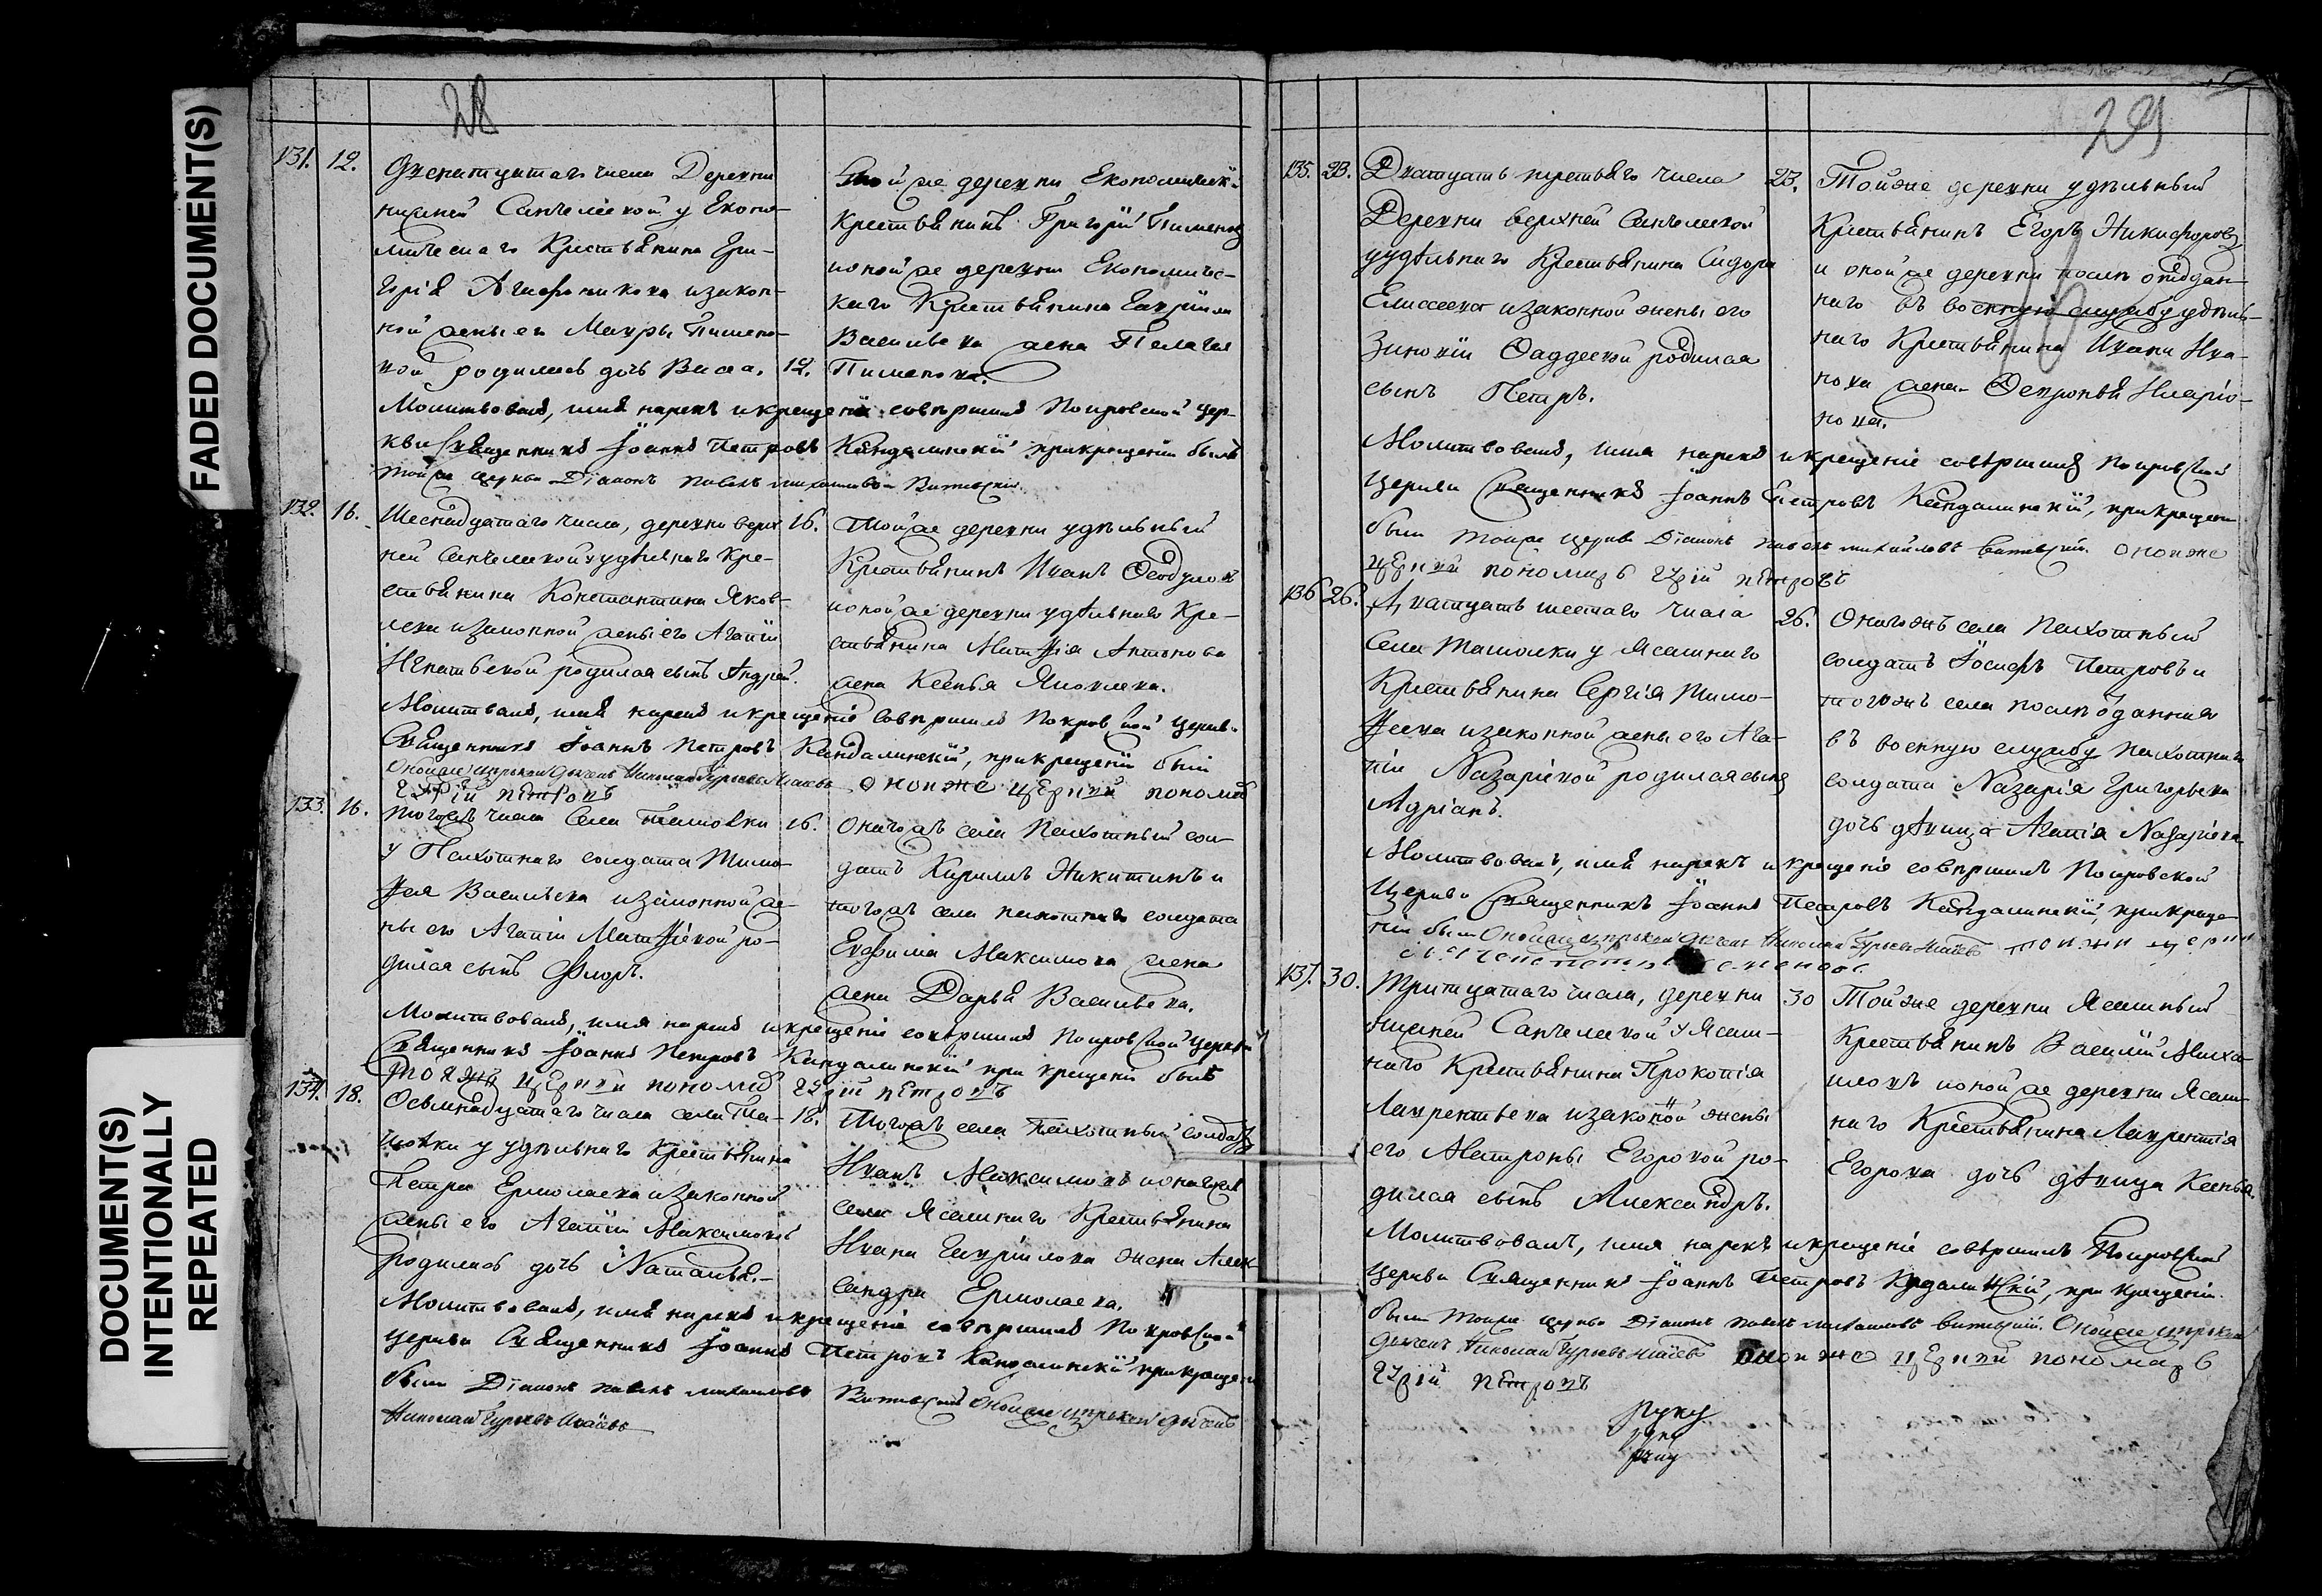 FADED DOCUMENT(S)
DOCUMENT(S)
INTENTIONALLY
REPEATED
28
131. 12. Двенатцатаго числа Деревни
нижней Санчелеской у Эконо-
мическаго Крестьянина Гри-
горія Агафоникова изакон-
ной жены ево Мавры Пимено-
вой родилась дочь Васса. 12.
той же деревни Економическ
Крестьянинъ Григорій Пименовъ
ионой же деревни Економиче-
скаго Крестьянина Гаврила
Васильева жена Пелагея
Пименова.
Молитвовалъ, имя нарекъ икрещеніе совершилъ Покровской цер-
кви Священникъ Іоаннъ Петровъ Кандалинскій прикрещеніи былъ
тойже церкви Діаконъ Павелъ Михайловъ
132. 16. Шеснадцатаго числа, деревни верх 16.
ней Санчелеской уудѣльнаго Кре-
стьянина Константина Яков-
лева изаконной жены его Агапіи
Игнатьевой родился сынъ Андрей.
Тойже деревни удѣльный
Крестьянинъ Иванъ Ѳеодуловъ
ионой же деревни удѣльнаго Кре-
стьянина Матѳія Антонова
жена Ксенья Яковлева.
Молитвалъ, имя нарекъ икрещеніе совершилъ Покровской церкви
Священникъ Іоаннъ Петровъ Кандалинскій, прикрещеніи былъ
Онойже церкви дьячекъ Николай Гурьевъ оноиже церкви пономарь
Гурій петровъ
133. 16. Тогожъ числа Села Ташолки 16.
у Пехотнаго солдата Тимо-
ѳея Васильева изаконной же-
ны ево Агапіи Матѳіевой ро-
дился сынъ Флоръ.
Онагожъ села Пехотный сол-
датъ Кирилъ Никитинъ и
тогожъ села пехотнаго солдата
Евфима Максимова жена
жена Дарья Васильева.
Молитвовалъ, имя нарекъ икрещеніе совершилъ Покровской Церкви
Священникъ Іоаннъ Петровъ Кандалинскій при крещеніи былъ
тояже церкви пономарь Гурій петровъ
134. 18. Осьмнадцатаго числа села Та- 18.
шолки у удѣльнаго Крестьянина
Петра Ермолаева изаконной
жены его Агапіи Максимовой
родилась дочь Наталья.
Тогожъ села Пехотный солдатъ
Иванъ Максимовъ ионагожъ
села Ясашнаго Крестьянина
Ивана Гаврилова жена Алек
сандра Ермолаева.
Молитвовалъ, имя нарекъ икрещеніе совершилъ Покровской
церкви Священникъ Іоаннъ Петровъ Кандалинскій прикрещеніи
были Діаконъ Павелъ Михайловъ онойже церкви дьячекъ
Николай Гурьевъ
29
135. 23. Дватцать третьяго числа 23.
Деревни верхней Санчелеской
уудѣльнаго Крестьянина Сидора
Елисеева изаконной жены его
Зиновіи Фаддеевой родился
сынъ Петръ.
Тойже деревни удѣльный
Крестьянинъ Егоръ Никифоровъ
и оной же деревни послѣ отдан-
наго въ военную службу удѣль-
наго Крестьянина Ивана Ива-
нова жена Февронья Иларіо-
нова.
Молитвовалъ, имя нарекъ икрещеніе совершилъ Покровской
Церкви Священникъ Іоаннъ Петровъ Кандалинскій, прикрещеніи
были тоиже церкви Діаконъ Павелъ Михайловъ оноиже
церкви пономарь Гурій петровъ
136 26. Дватцать шестаго числа 26.
Села Ташолки у Ясашнаго
Крестьянина Сергія Тимо-
ѳеева изаконной жены его Ага-
піи Назаріевой родился сынъ
Адріанъ.
Онагожъ села Пехотный
солдатъ Іосифъ Петровъ и
тогожъ села послѣ отданнаго
въ военную службу пехотнаго
солдата Назарія Григорьева
дочь дѣвица Агапія Назаріева
Молитвовалъ, имя нарекъ икрещеніе совершилъ Покровской
Церкви Священникъ Іоаннъ Петровъ Кандалинскій, прикреще-
ніи были Онойже церкви дьячекъ Николай Гурьевъ
137. 30. Тритцатаго числа, деревни 30
нижней Санчелеской у Ясаш-
наго Крестьянина Прокопія
Лаврентьева изаконой жены
его Матроны Егоровой ро-
дился сынъ Александръ.
Тойже деревни Ясашный
Крестьянинъ Василій Миха
иловъ ионой же деревни Ясаш-
наго Крестьянина Лаврентія
Егорова дочь дѣвица Ксенья.
Молитвовалъ, имя нарекъ икрещеніе совершилъ Покровской
Церкви Священникъ Іоаннъ Петровъ Кадалинскій, при крещеніи
были тоиже церкви Діаконъ Павелъ Михайловъ Онойже церкви
дьячекъ Николай Гурьевъ оноиже церкви пономарь
Гурій петровъ
руку